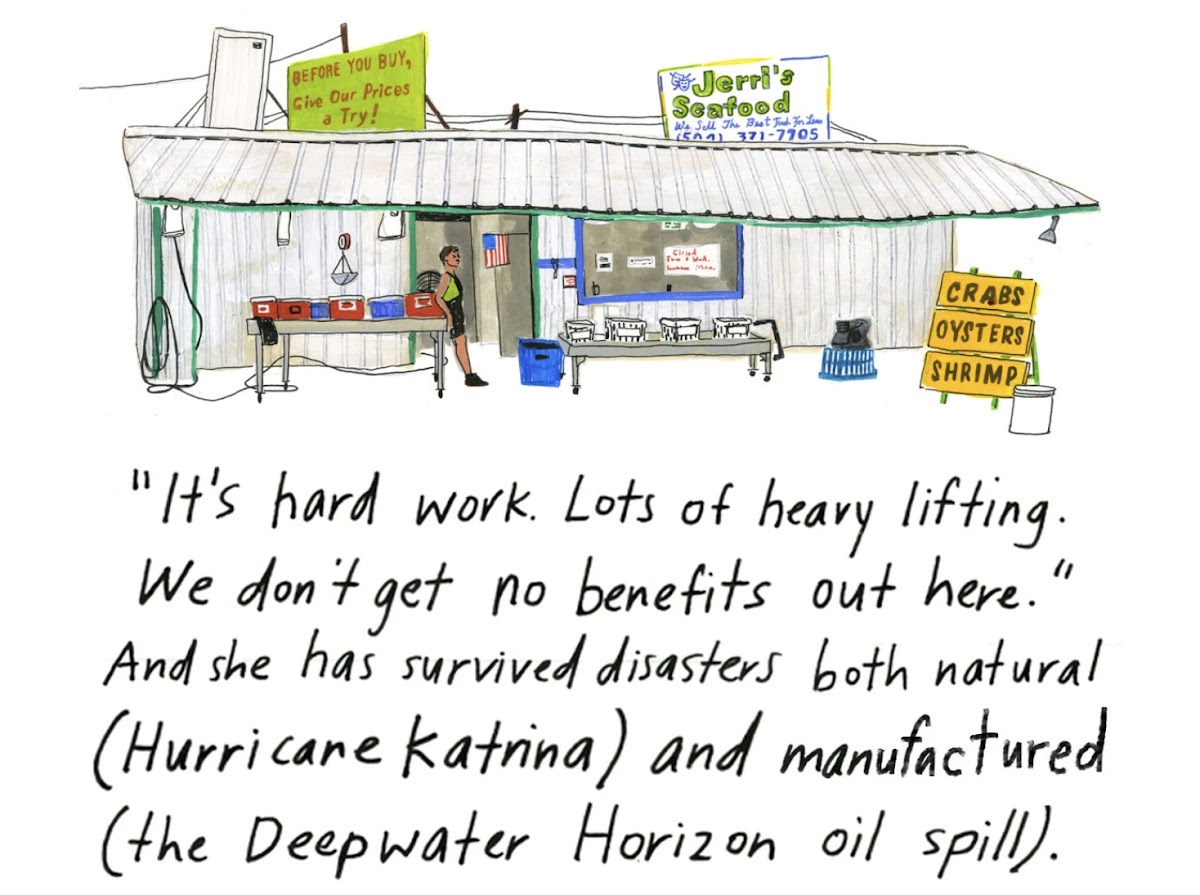 BEFORE YOU BUY,
Give Our Prices
a Try!
Jerri's
Seafood
We Sell The Best For Less
(504) 371-7705
Closed
CRABS
OYSTERS
SHRIMP
"It's hard work. Lots of heavy lifting.
We don't get no benefits out here."
And she has survived disasters both natural
(Hurricane Katrina) and manufactured
(the Deepwater Horizon oil spill).